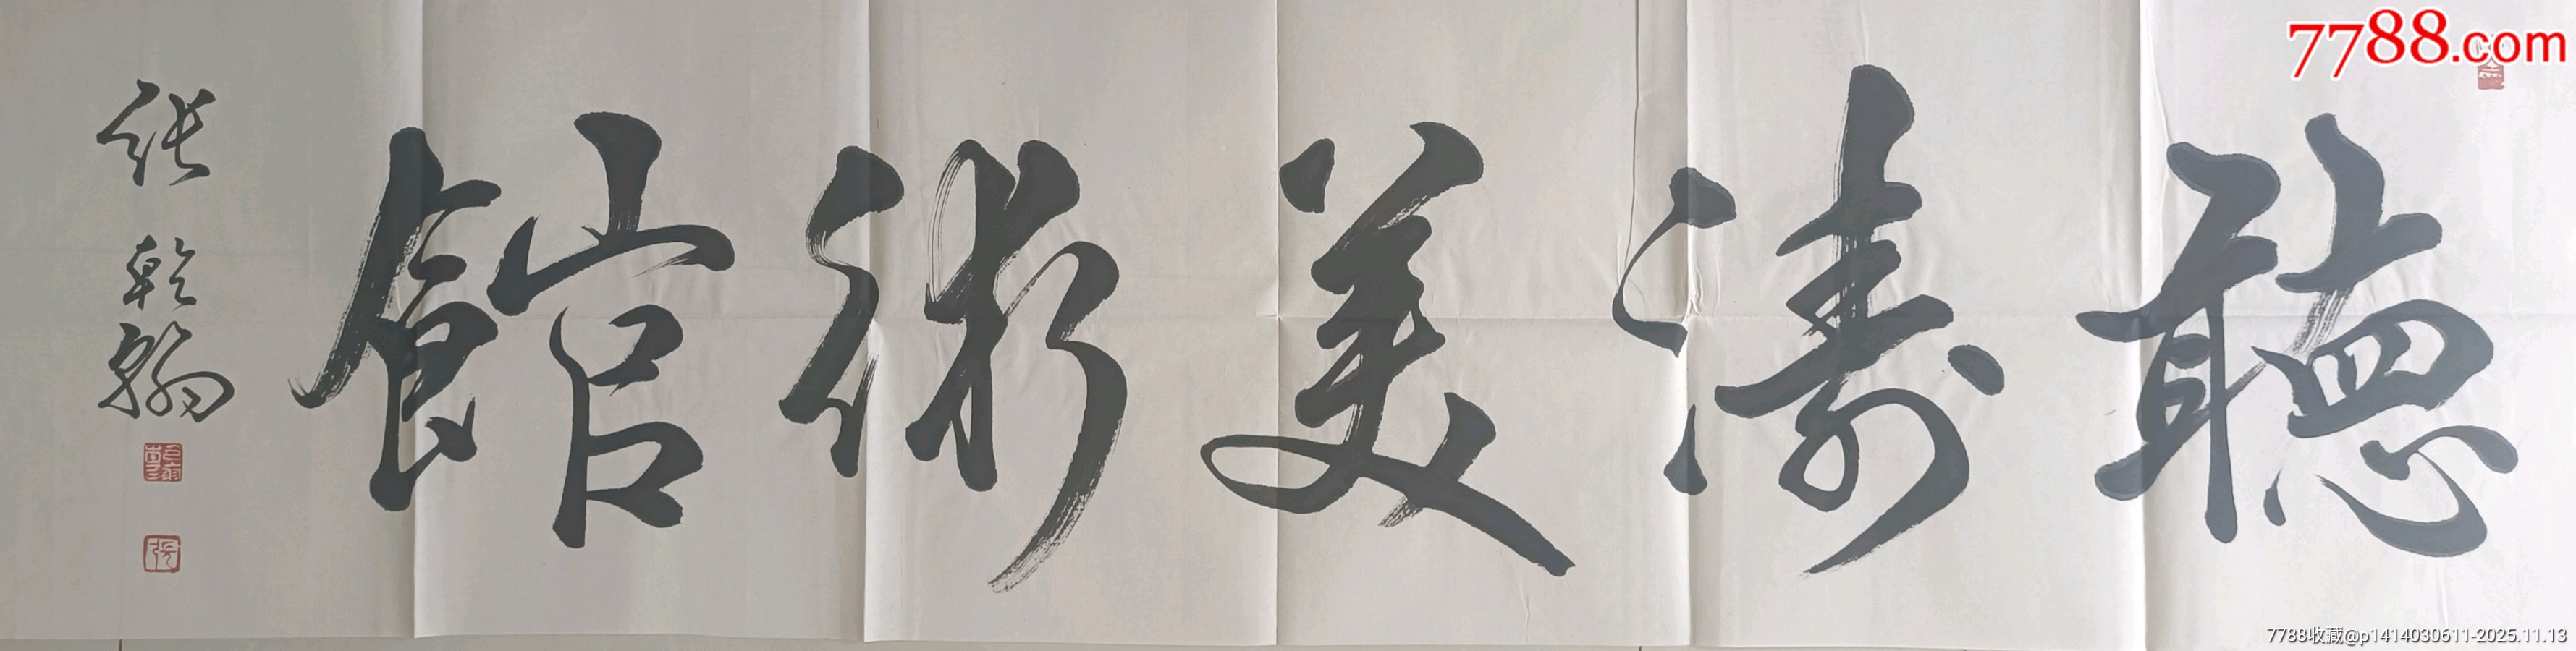 聽濤美術館
張乾翰
7788.com
7788收藏@p1414030611-2025.11.13